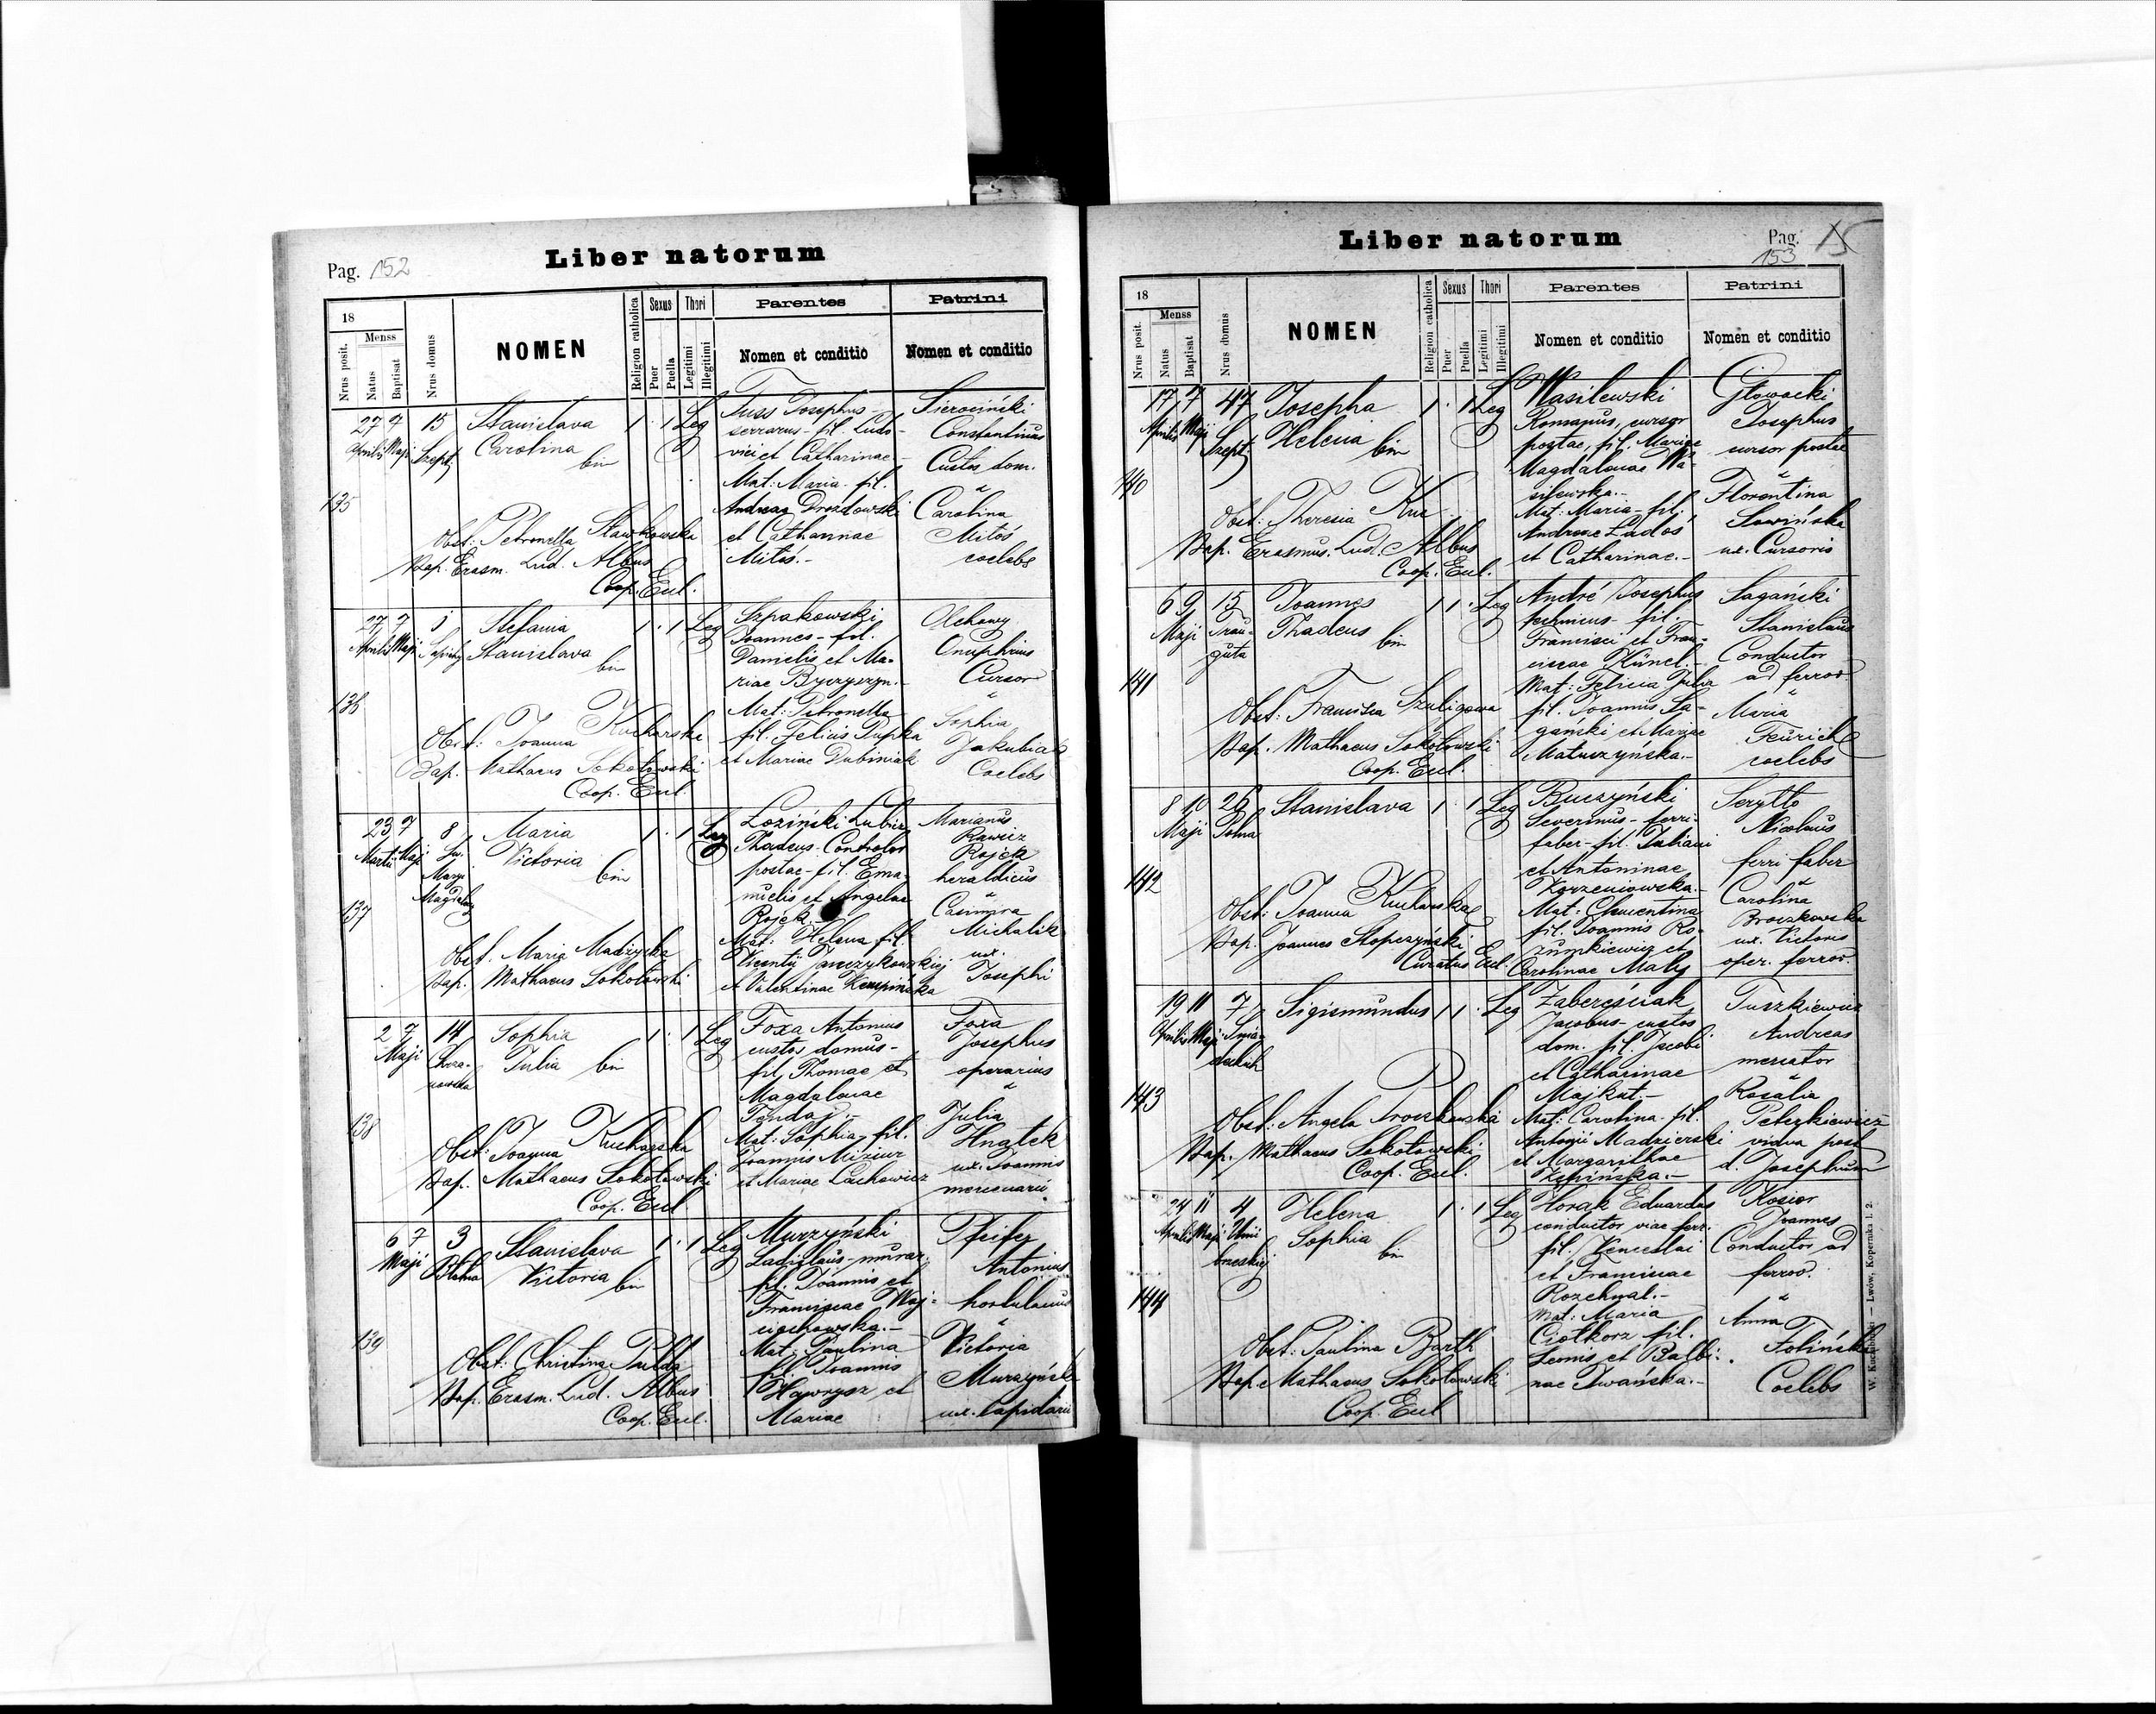 Pag. 152
Liber natorum
18
Menss
Nrus posit.
Natus
Baptisat
Nrus domus
NOMEN
Religion catholica
Sexus
Puer
Puella
Thori
Legitimi
Illegitimi
Parentes
Nomen et conditio
Patrini
Nomen et conditio
135
27 7
Aprilis Maji
15
Szept.
Stanislava
Carolina
bin
1 1 Leg
Obst: Petronella Sławkowska
Bap. Erasm. Lud. Albus
Coop. Eccl.
Fuss Josephus
serrarus - fil. Ludo-
vici et Catharinae -
Mat: Maria fil.
Andreae Drozdowski
et Catharinae
Mitoś.-
Sierociński
Constantinus
Custos dom.
Carolina
Mitoś
coelebs
136
27 7
Aprilis Maji
1
Sapiehy
Stefania
Stanislava
bin
1 1 Leg
Obst: Joanna Kucharska
Bap. Mathaeus Sokołowski
Coop. Eccl.
Szpakowski
Joannes - fil.
Danielis et Ma-
riae
Mat: Petronella
fil. Felicis Pupka
et Mariae Dubiniak
Olchowy
Onuphrius
Cursor
Sophia
Jakubiak
Coelebs
137
23 7
Martii Maji
8
Św.
Maryi
Magdaleny
Maria
Victoria
bin
1 1 Leg
Obst. Maria Madzyska
Bap. Mathaeus Sokołowski
Łoziński Lubicz
Thadeus - Controlor
postae - fil. Ema-
nuelis et Angelae
Rojek.-
Mat: Helena fil.
Vicentii
et Valentinae Kempińska
Marianus
Rawicz
Rojek
heraldicus
Casimira
Michalik
ux.
Josephi
138
2 7
Maji
14
Chrza-
nowska
Sophia
Julia bin
1 1 Leg
Obst: Joanna Kucharska
Bap. Mathaeus Sokołowski
Coop. Eccl.
Foxa Antonius
custos domus -
fil. Thomae et
Magdalenae
Fondaj.-
Mat: Sophia, fil.
Joannis Miziur
et Mariae Lachowicz
Foxa
Josephus
operarius
Julia
Hnatek
ux. Joannis
mercenarii
139
6 7
Maji
3
Polna
Stanislava
Victoria bin
1 1 Leg
Obst: Christina Pulda
Bap. Erasm. Lud. Albus
Coop. Eccl.
Murzyński
Ladislaus - murar.
fil. Joannis et
Franciscae Woj-
ciechowska.-
Mat: Paulina
fil. Joannis
Hawrysz et
Mariae
Pfeifer
Antonius
hortulanus
Victoria
Murzyńska
ux. lapidarii
Liber natorum
Pag. 15
153
18
Menss
Nrus posit.
Natus
Baptisat
Nrus domus
NOMEN
Religion catholica
Sexus
Puer
Puella
Thori
Legitimi
Illegitimi
Parentes
Nomen et conditio
Patrini
Nomen et conditio
140
17 7
Aprilis Maji
47
Szept.
Josepha
Helena bin
1 1 Leg
Obst: Theresia Kuc
Bap. Erasmus. Lud. Albus
Coop. Eccl.
Wasilewski
Romanus, cursor
postae, fil. Mariae
Magdalenae Wa-
silewska.-
Mat: Maria - fil.
Andreae Ładoś
et Catharinae.-
Głowacki
Josephus
cursor postae
Florentina
Sawińska
ux. Cursoris
141
6 9
Maji
15
Trau-
guta
Joannes
Thadeus bin
1 1 Leg
Obst: Francisca Szuligowa
Bap. Mathaeus Sokołowski
Coop. Eccl.
André Josephus
technicus - fil.
Francisci et Fran-
ciscae Künel.-
Mat: Felicia Julia
fil. Joannis Ła-
gański et Mariae
Matuszyńska.-
Łagański
Stanislaus
Conductor
ad ferrov.
Maria
Feurich
coelebs
142
8 10
Maji
26
Polna
Stanislava
1 1 Leg
Obst: Joanna Kucharska
Bap. Joannes Stopczyński
Curatus Eccl.
Buczyński
Severinus - ferri-
faber - fil. Juliani
et Antoninae
Korzeniowska.-
Mat: Clementina
fil. Joannis Ro-
zumkiewicz et
Carolinae Mały
Serytto
Nicolaus
ferri faber
Carolina
Broszkowska
ux. Victoris
oper. ferrov.
143
19 11
Aprilis Maji
7
Śnia-
deckich
Sigismundus
1 1 Leg
Obst: Angela Proszkowska
Bap. Mathaeus Sokołowski
Coop. Eccl.
Zabereściak
Jacobus - custos
dom. fil. Jacobi
et Catharinae
Majkut.-
Mat: Carolina fil.
Antonii Madzierski
et Margarithae
Tuszkiewicz
Andreas
mercator
Rosalia
Petezkiewicz
vidua post
d. Josephum
144
24 11
Aprilis Maji
4
Unii
brzeskiej
Helena
Sophia bin
1 1 Leg
Obst: Paulina Barth
Bap. Mathaeus Sokołowski
Coop. Eccl
Horak Eduardus
conductor viae ferr.
fil. Venceslai
et Franciscae
Rozehnal.-
Mat: Maria
Ciołkorz fil.
Leonis et Balbi-
nae Iwańska.-
Kosior
Joannes
Conductor ad
ferrov.
Anna
Folińska
Coelebs
W. Kuczabiński — Lwów, Kopernika l. 2.